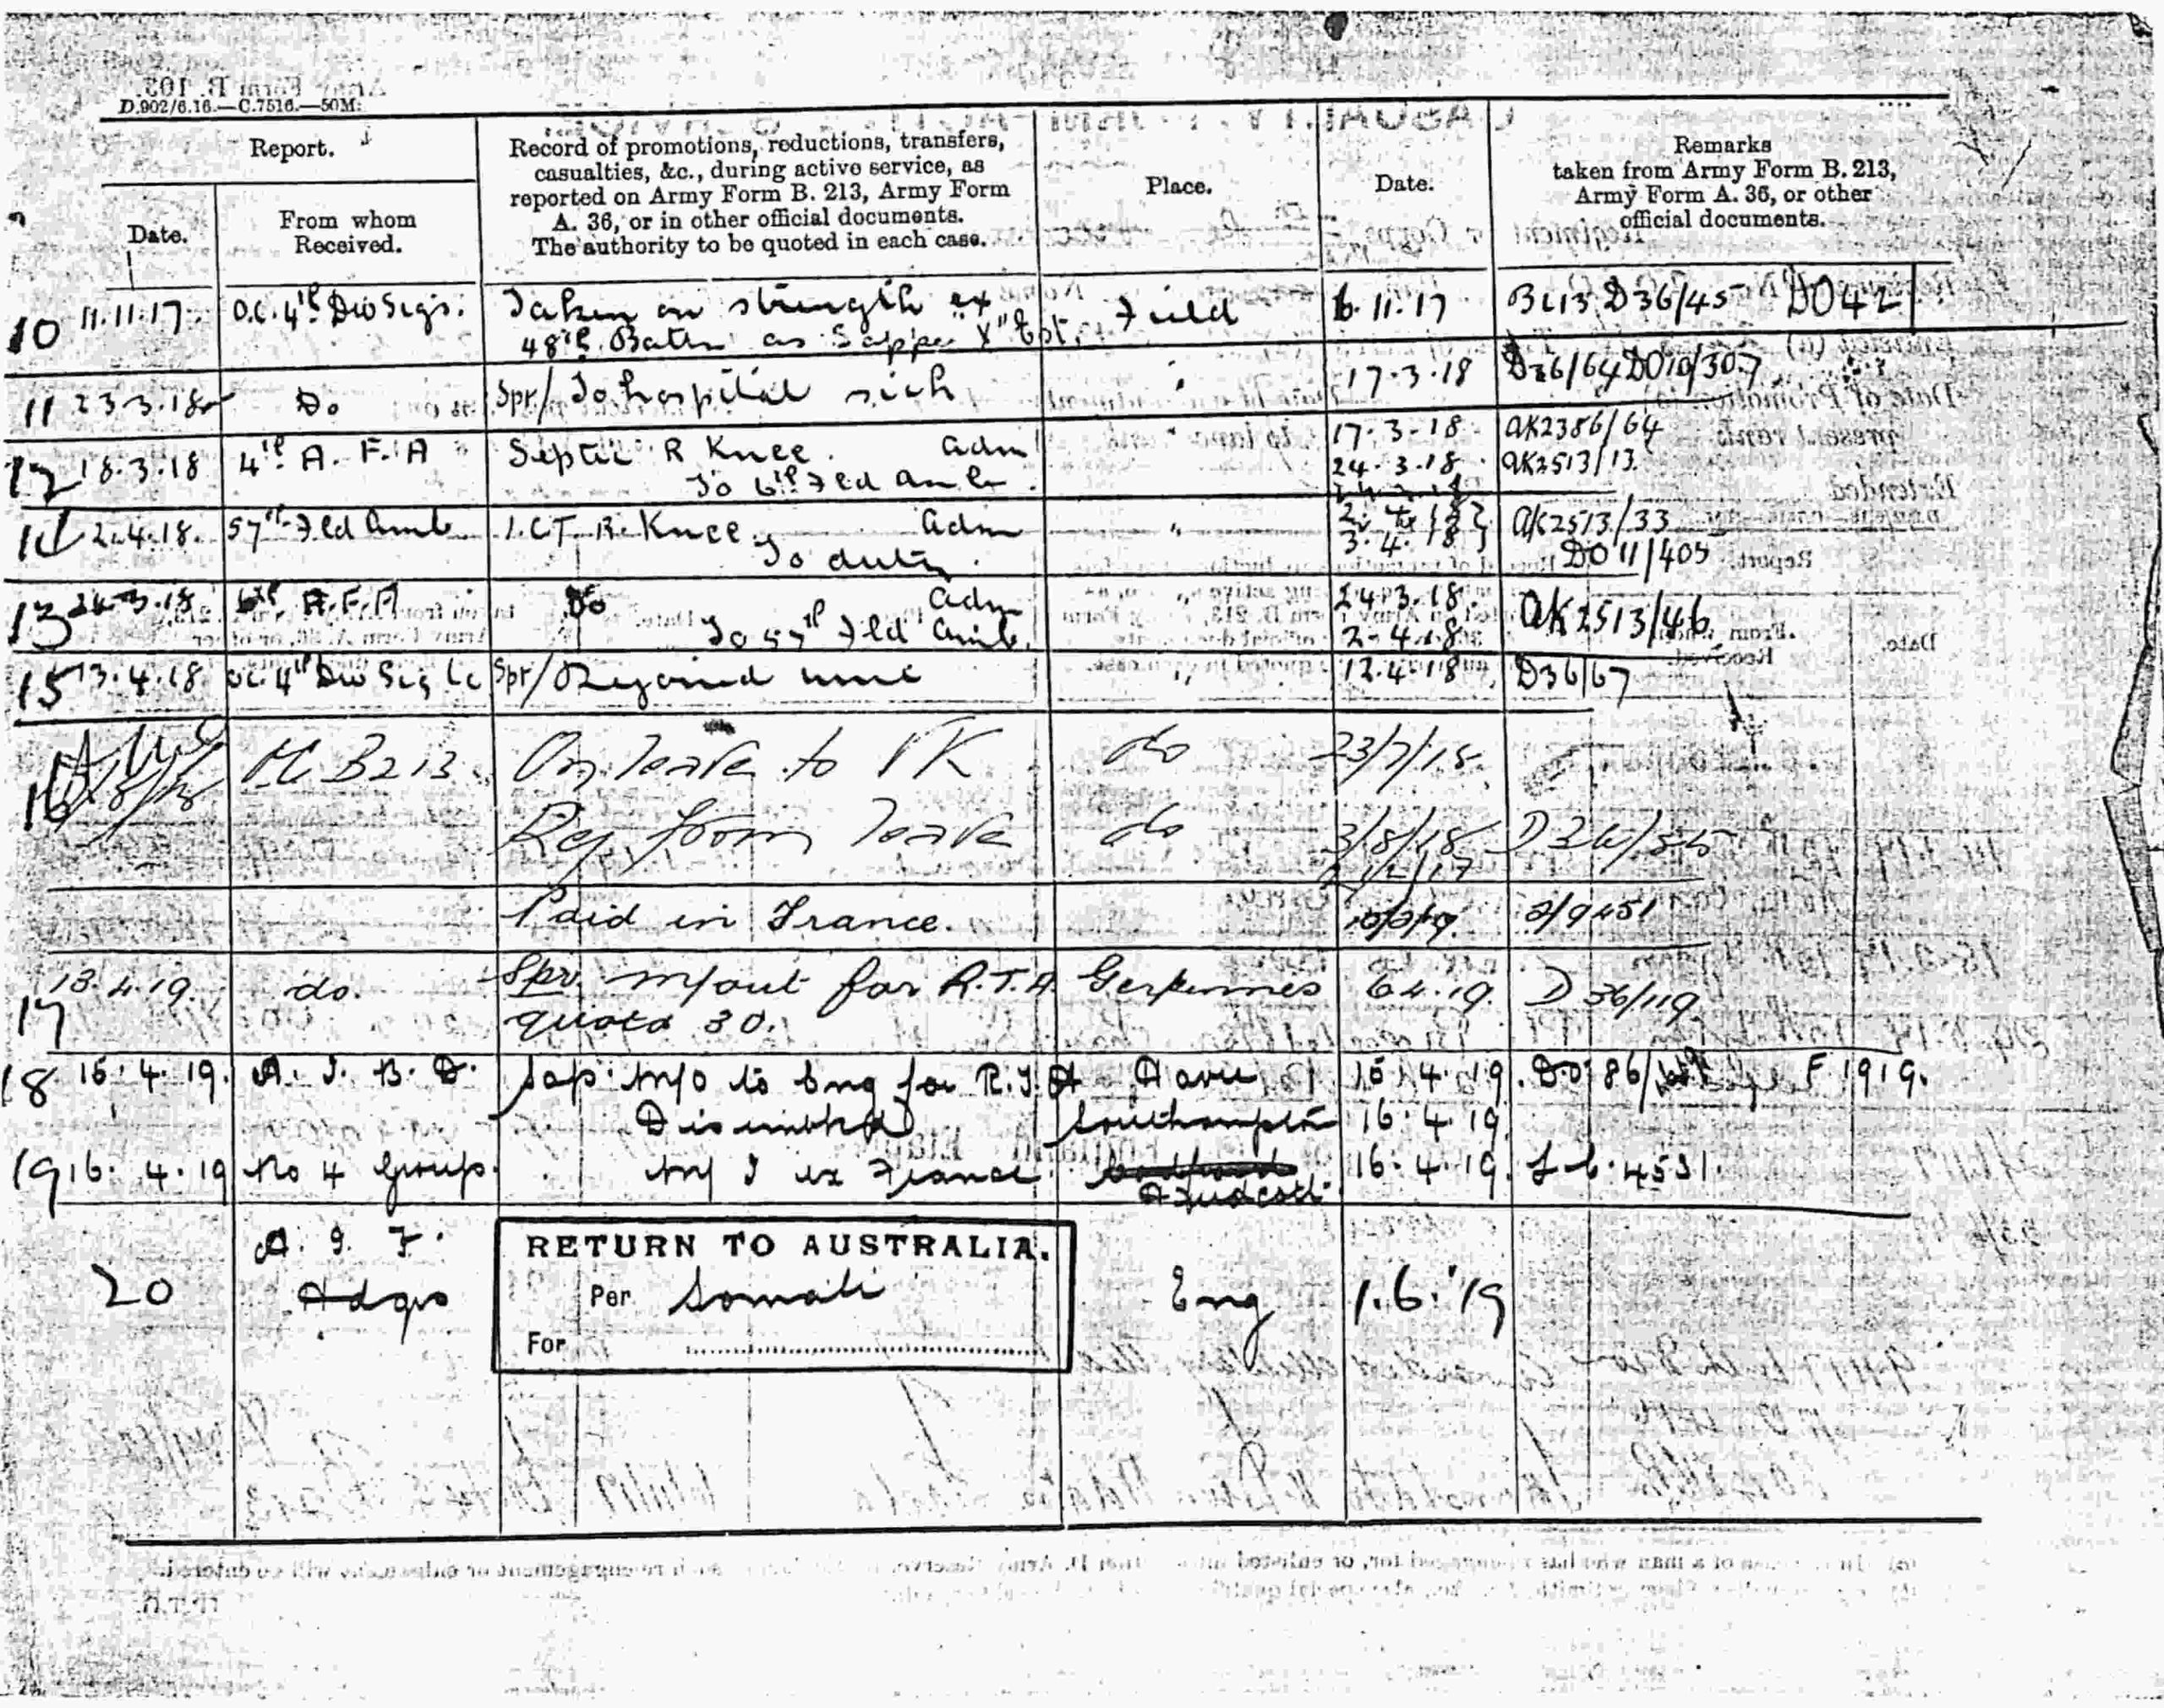 D.902/6.16.—C.7516.—50M.
Report.
Date.
From whom
Received.
Record of promotions, reductions, transfers,
casualties, &c., during active service, as
reported on Army Form B. 213, Army Form
A. 36, or in other official documents.
The authority to be quoted in each case.
Place.
Date.
Remarks
taken from Army Form B. 213,
Army Form A. 36, or other
official documents.
10 11.11.17 O.C. 4th Div Sigs. Taken on strength ex Field 6.11.17 B213 D36/45 DO42
48th Battn as Sapper "X" Est.
11 23.3.18 Do Spr/ To hospital sick " 17.3.18 D36/64 DO10/307
12 18.3.18 4th A. F. A Septic R Knee. adm 17.3.18 AK2386/64
To 6th Fld Amb. 24.3.18 AK2513/13
14 2.4.18. 57th Fld Amb I.C.T. R. Knee. adm " 2.4.18 AK2513/33
To duty. 3.4.18 DO 11/405
13 24.3.18 6th A.F.A Do adm 24.3.18. AK2513/46
To 57th Fld Amb. 2.4.18
15 13.4.18 OC. 4th Div Sig Co Spr/ Rejoined unit " 12.4.18 D36/67
16 B213 On leave to UK do 23/7/18
Rej from leave do 3/8/18 D36/85
Paid in France. 2/9451
17 13.4.19. do. Spr. m/out for R.T.A. Gerpinnes 6.4.19. D36/119
quota 30.
18 15.4.19. A. I. B. D. Sap. M/O to Eng for R.T.A Havre 15.4.19. DO 86/ F 1919.
Disembkd Southampton 16.4.19.
19 16.4.19 No 4 Group. M/I ex France. 16.4.19. L.6.4531.
Hurdcott
20 A. I. F. RETURN TO AUSTRALIA.
Hdqrs Per Somali Eng 1.6.'19
For